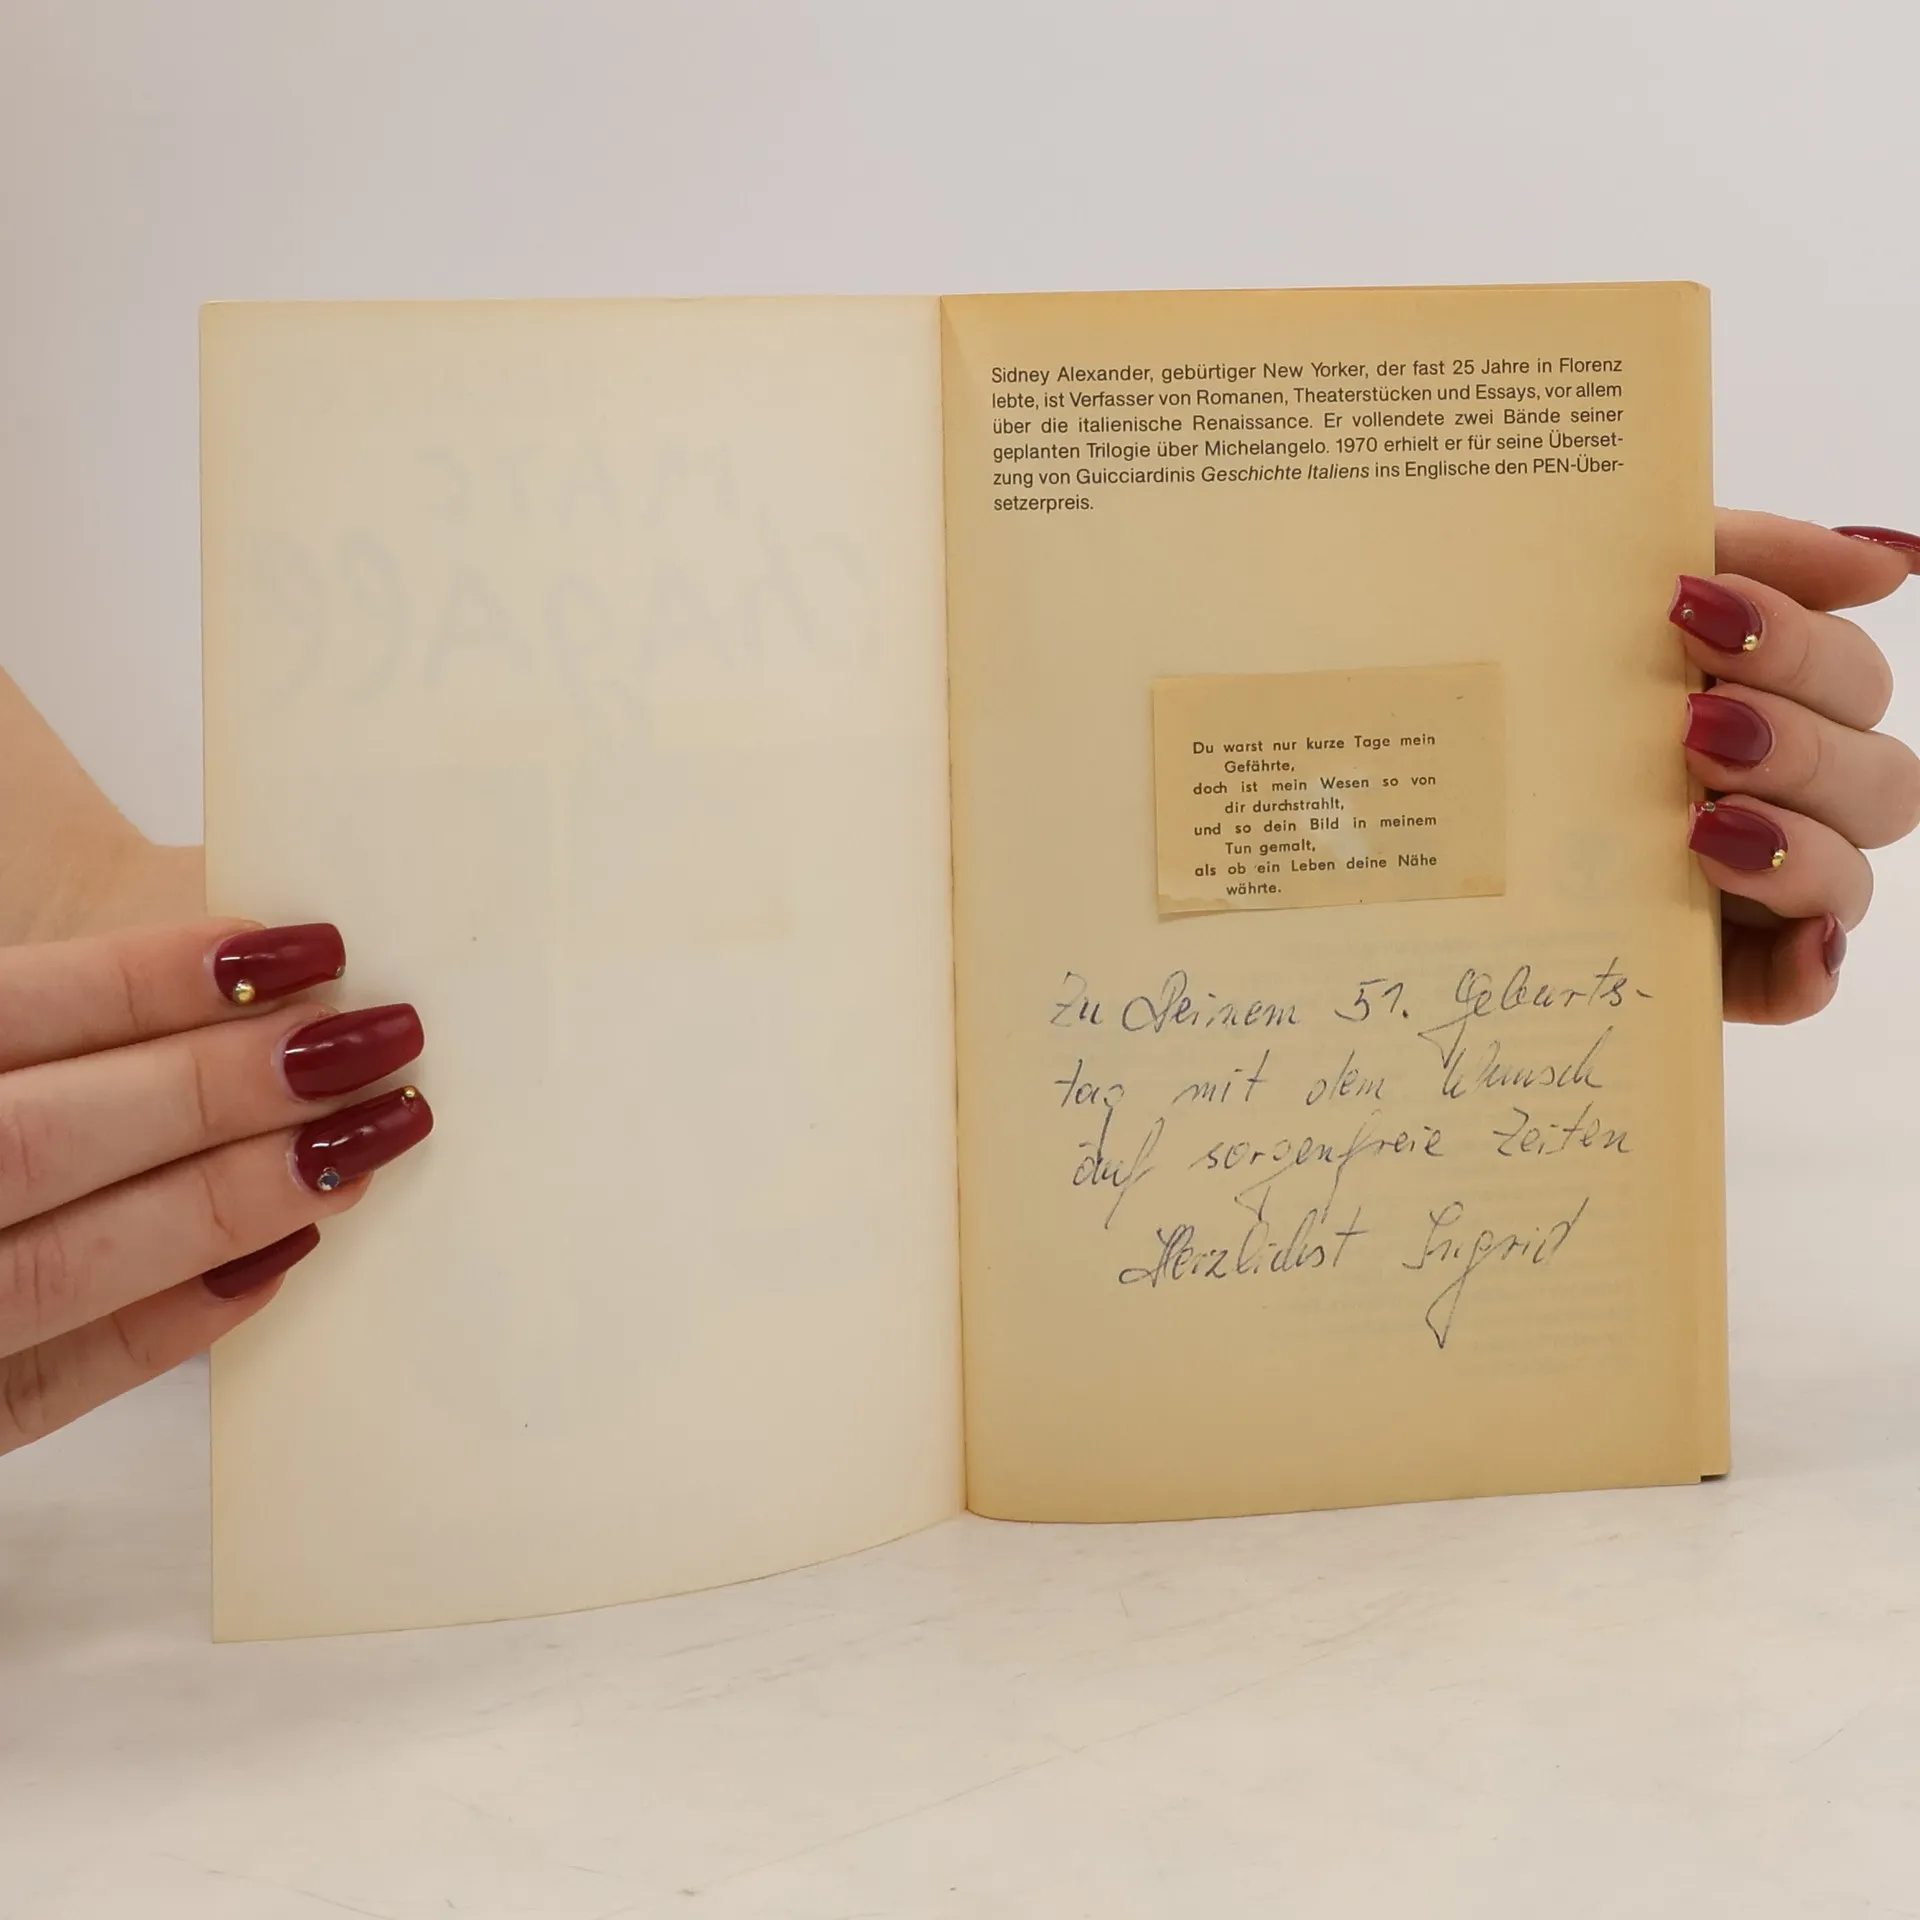 MARC
ChAgALL
Sidney Alexander, gebürtiger New Yorker, der fast 25 Jahre in Florenz
lebte, ist Verfasser von Romanen, Theaterstücken und Essays, vor allem
über die italienische Renaissance. Er vollendete zwei Bände seiner
geplanten Trilogie über Michelangelo. 1970 erhielt er für seine Überset-
zung von Guicciardinis Geschichte Italiens ins Englische den PEN-Über-
setzerpreis.
Du warst nur kurze Tage mein
Gefährte,
doch ist mein Wesen so von
dir durchstrahlt,
und so dein Bild in meinem
Tun gemalt,
als ob ein Leben deine Nähe
währte.
Zu Deinem 51. Geburts-
tag mit dem Wunsch
auf sorgenfreie Zeiten
Herzlichst Ingrid